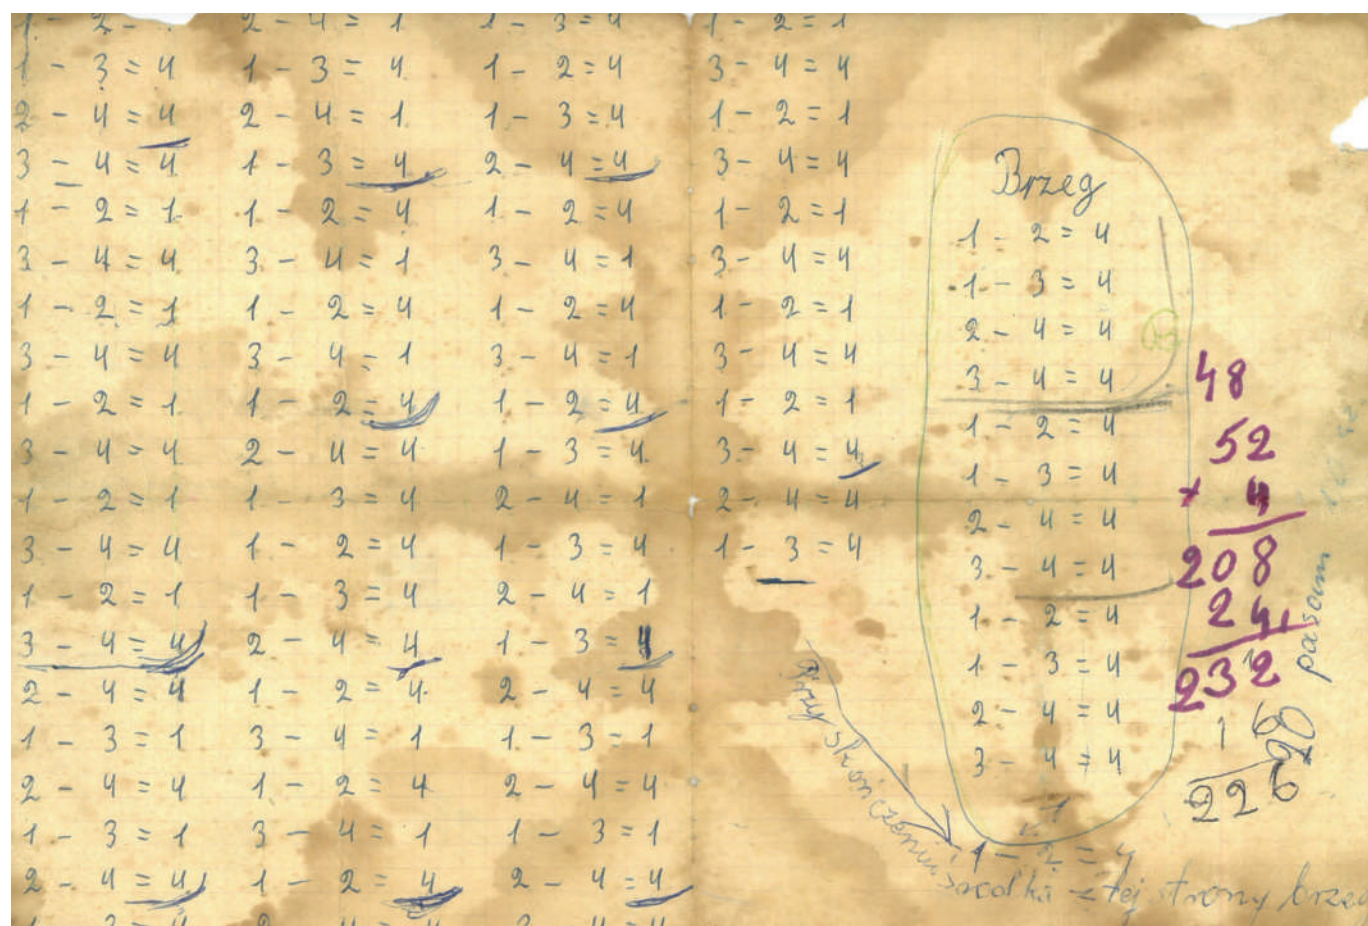 1 - 3 = 4
2 - 4 = 4
3 - 4 = 4
1 - 2 = 1
3 - 4 = 4
1 - 2 = 1
3 - 4 = 4
1 - 2 = 1
3 - 4 = 4
1 - 2 = 1
3 - 4 = 4
1 - 2 = 1
3 - 4 = 4
2 - 4 = 4
1 - 3 = 1
2 - 4 = 4
1 - 3 = 1
2 - 4 = 4
2 - 4 = 1
1 - 3 = 4
2 - 4 = 1
1 - 3 = 4
1 - 2 = 4
3 - 4 = 1
1 - 2 = 4
3 - 4 - 1
1 - 2 = 4
2 - 4 = 4
1 - 3 = 4
1 - 2 = 4
1 - 3 = 4
2 - 4 = 4
1 - 2 = 4
3 - 4 = 1
1 - 2 = 4
3 - 4 = 1
1 - 2 = 4
1 - 3 = 4
1 - 2 = 4
1 - 3 = 4
2 - 4 = 4
1 - 2 = 4
3 - 4 = 1
1 - 2 = 4
3 - 4 = 1
1 - 2 = 4
1 - 3 = 4
2 - 4 = 1
1 - 3 = 4
2 - 4 = 1
1 - 3 = 4
2 - 4 = 4
1 - 3 = 1
2 - 4 = 4
1 - 3 = 1
2 - 4 = 4
1 - 2 = 1
3 - 4 = 4
1 - 2 = 1
3 - 4 = 4
1 - 2 = 1
3 - 4 = 4
1 - 2 = 1
3 - 4 = 4
1 - 2 = 1
3 - 4 = 4
2 - 4 = 4
1 - 3 = 4
Brzeg
1 - 2 = 4
1 - 3 = 4
2 - 4 = 4
3 - 4 = 4
1 - 2 = 4
1 - 3 = 4
2 - 4 = 4
3 - 4 = 4
1 - 2 = 4
1 - 3 = 4
2 - 4 = 4
3 - 4 = 4
1 - 2 = 4
Przy skończeniu środka z tej strony brzeg
48
52
× 4
208
24
232
pasam
16
226